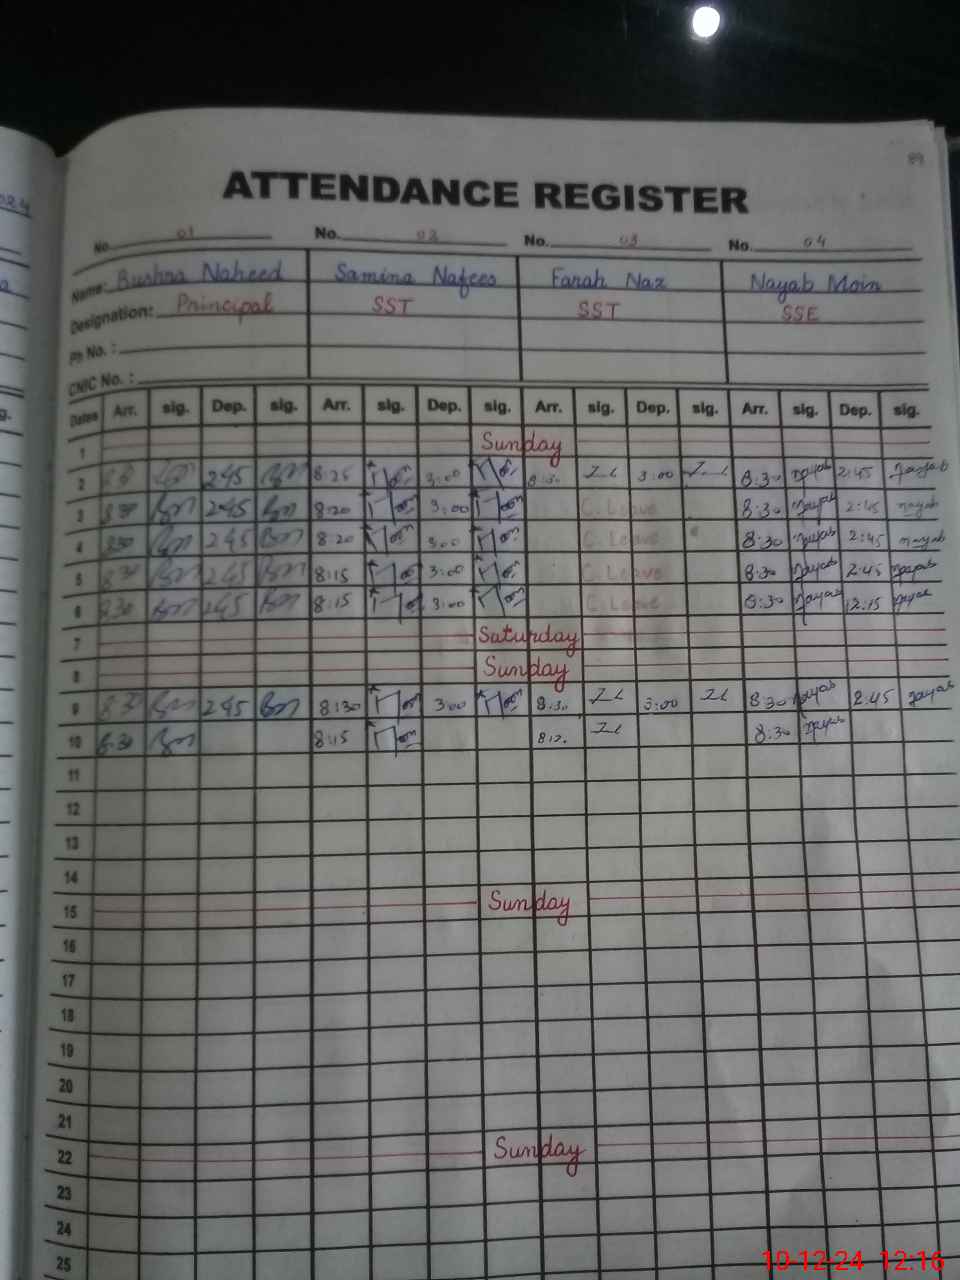 89
ATTENDANCE REGISTER
No. 01 No. 02 No. 03 No. 04
Name: Bushra Naheed Samina Nafees Farah Naz Nayab Moin
Designation: Principal SST SST SSE
Ph No. :
CNIC No. :
Dates Arr. sig. Dep. sig. Arr. sig. Dep. sig. Arr. sig. Dep. sig. Arr. sig. Dep. sig.
1 Sunday
2 245 8:25 3:00 8:30 3:00 8:30 Nayab 2:45 Nayab
3 830 245 8:20 3:00 C. Leave 8:30 Nayab 2:45 Nayab
4 830 245 8:20 3:00 C. Leave 8:30 Nayab 2:45 Nayab
5 830 245 8:15 3:00 C. Leave 8:30 Nayab 2:45 Nayab
6 830 245 8:15 3:00 C. Leave 8:30 Nayab 12:15 Nayab
7 Saturday
8 Sunday
9 830 245 8:30 3:00 8:30 3:00 8:30 Nayab 2:45 Nayab
10 8:30 8:15 8:30 Nayab
11
12
13
14
15 Sunday
16
17
18
19
20
21
22 Sunday
23
24
25
10-12-24 12:16